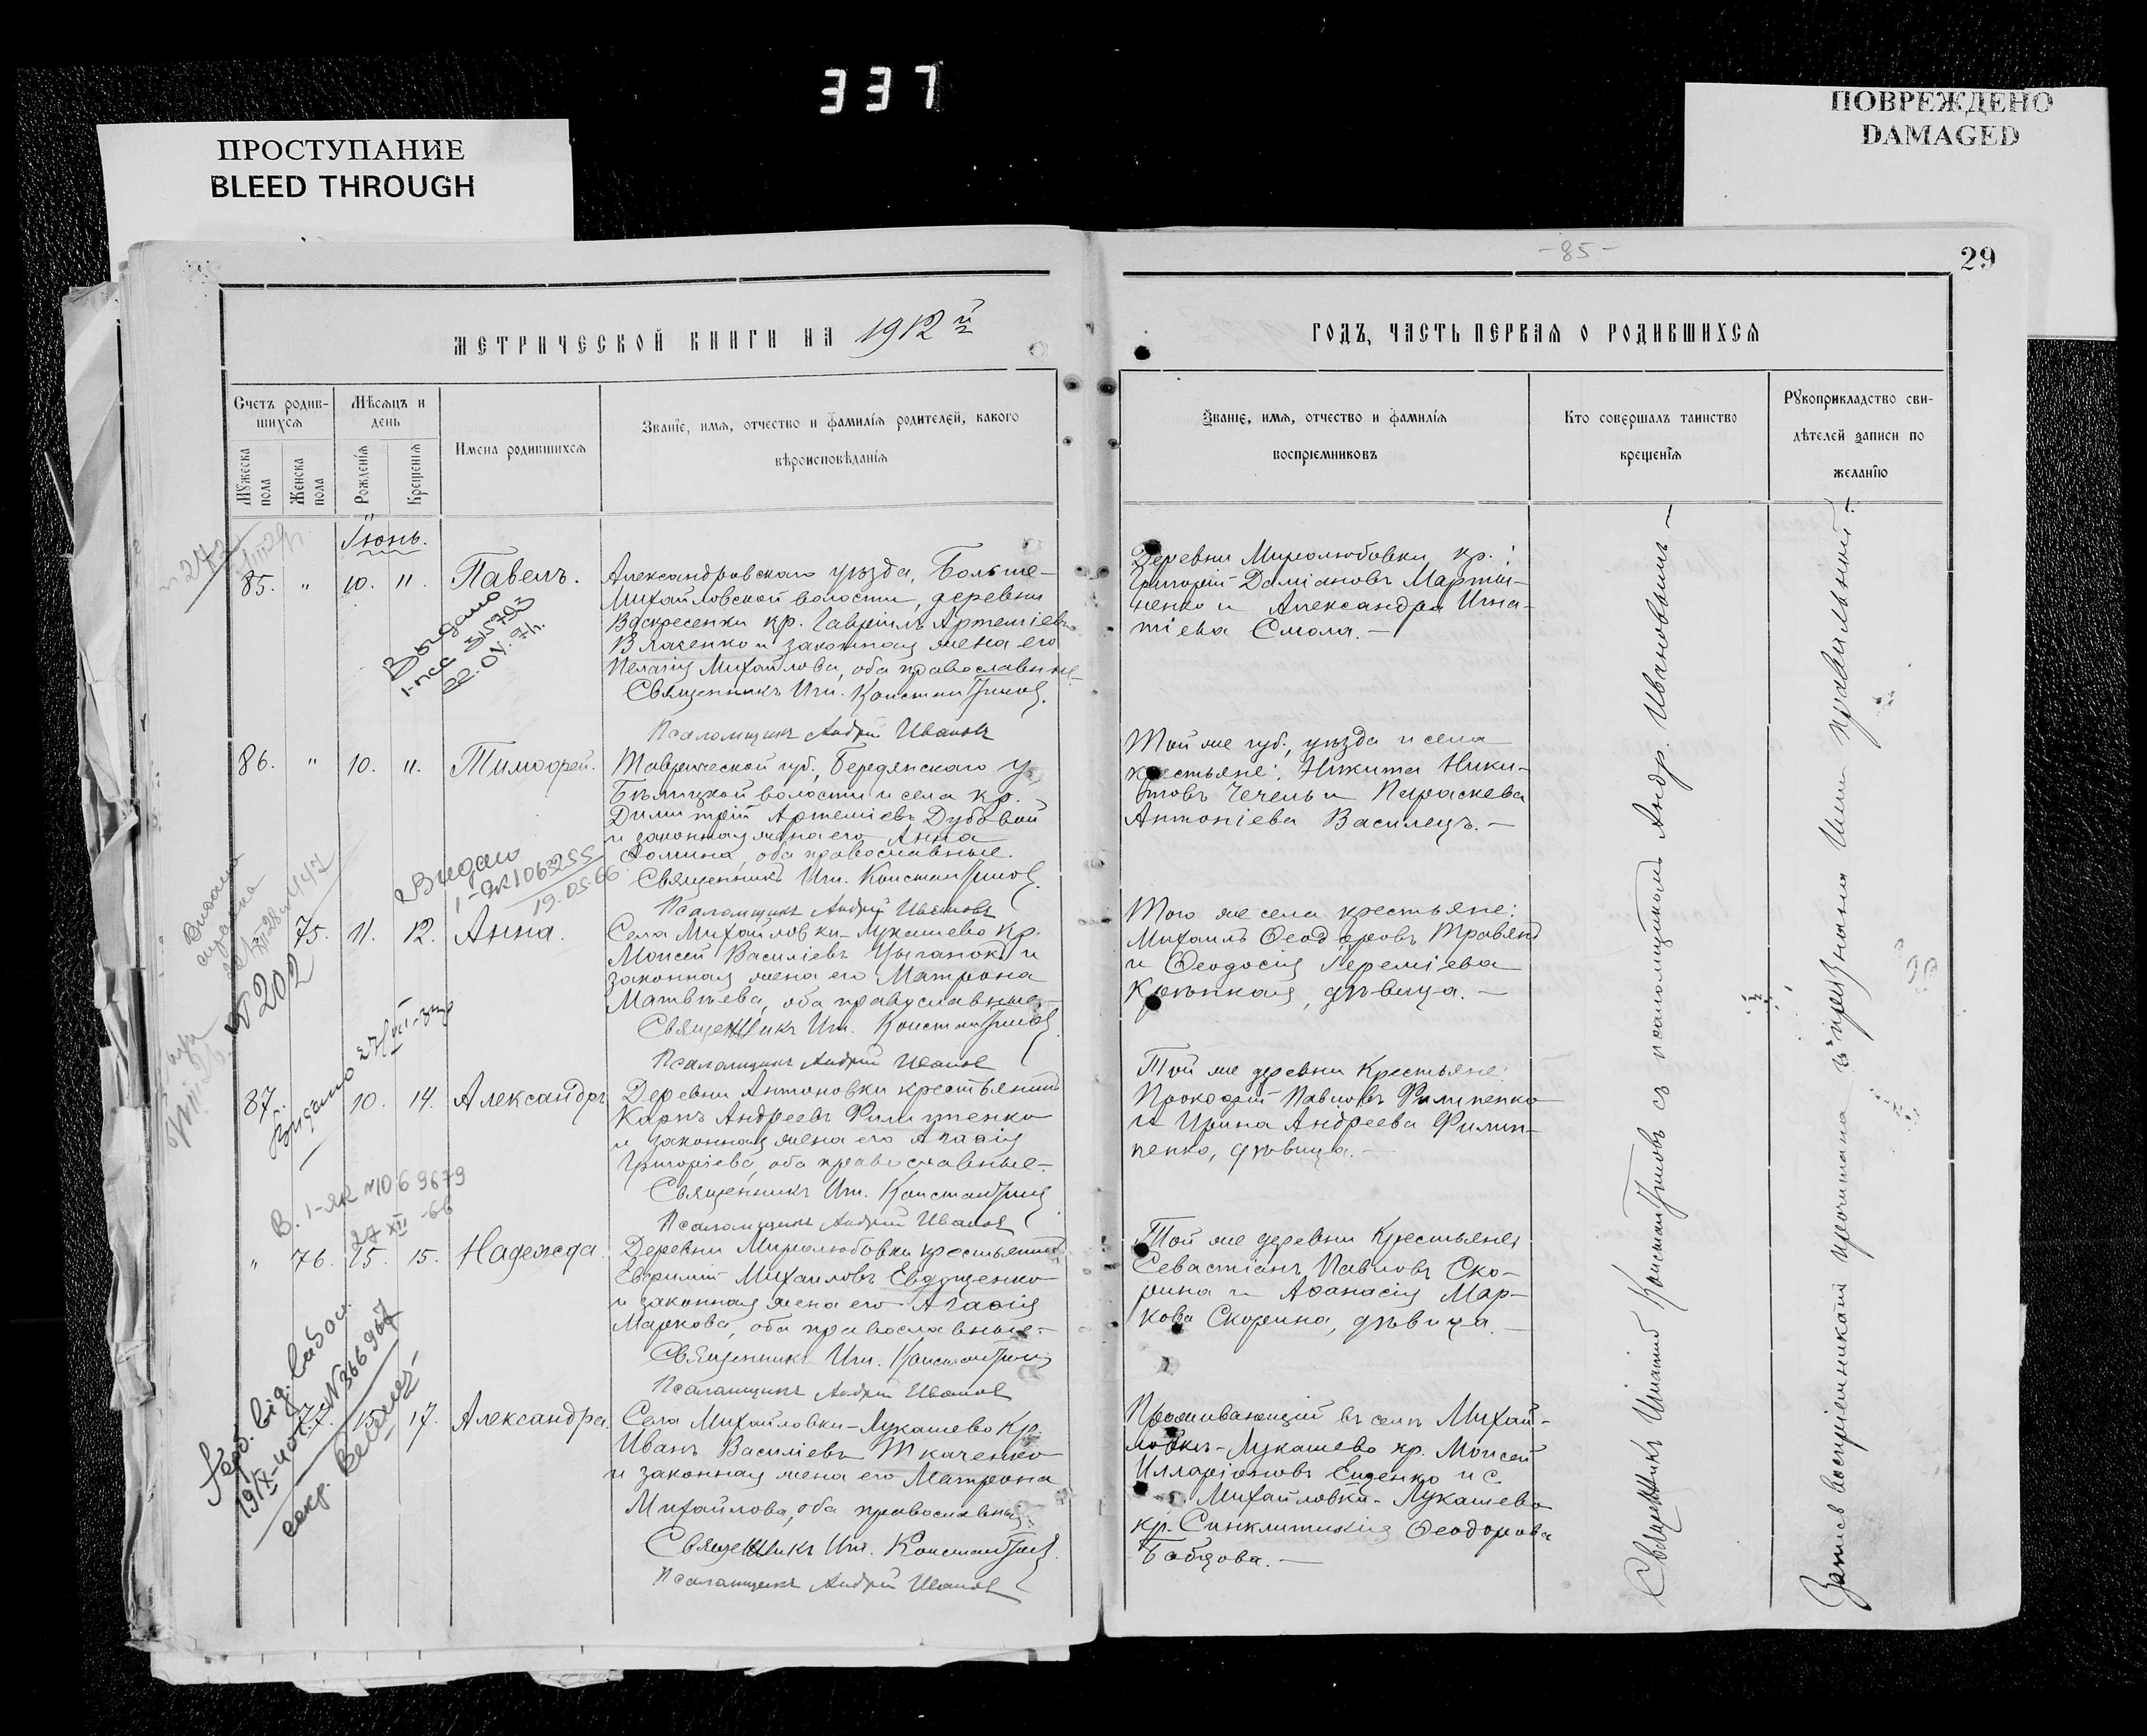 337
ПРОСТУПАНИЕ
BLEED THROUGH
ПОВРЕЖДЕНО
DAMAGED
-85-
29
МЕТРИЧЕСКОЙ КНИГИ НА 1912 й
ГОДЪ, ЧАСТЬ ПЕРВАЯ О РОДИВШИХСЯ
Счетъ родив-
шихся
Мужеска
пола
Женска
пола
Мѣсяцъ и
день
Рожденія
Крещенія
Имена родившихся
Званіе, имя, отчество и фамилія родителей, какого
вѣроисповѣданія
Званіе, имя, отчество и фамилія
воспріемниковъ
Кто совершалъ таинство
крещенія
Рукоприкладство сви-
дѣтелей записи по
желанію
Іюнь.
85. " 10. 11. Павелъ.
Александровскаго уѣзда, Больше-
Михайловской волости, деревни
Воскресенки кр. Гавріилъ Артеміевъ
Власенко и законная жена его
Пелагія Михайлова, оба православные
Священникъ Игн. Константиновъ.
Псаломщикъ Андрей Ивановъ
Деревни Миролюбовки кр.:
Григорій Даміановъ Марти-
ненко и Александра Игна-
тіева Смола.-
Выдано
22.04.
86. " 10. 11. Тимофей.
Таврической губ., Бердянскаго у.
Бѣлицкой волости и села кр.
Димитрій Артеміевъ Дубовой
и законная жена его Анна
Фомина, оба православные.
Священникъ Игн. Константиновъ.
Псаломщикъ Андрей Ивановъ
Той же губ., уѣзда и села
крестьяне: Никита Ники-
товъ Чечель и Параскева
Антоніева Василецъ.-
Видано
I-ЯК 1063255
19.05.66
75. 11. 12. Анна.
Села Михайловки-Лукашево кр.
Моисей Василіевъ Цыганокъ и
законная жена его Матрона
Матвѣева, оба православные-
Священникъ Игн. Константиновъ
Псаломщикъ Андрей Ивановъ
Того же села крестьяне:
Михаилъ Ѳеодоровъ
и Ѳеодосія Іереміева
дѣвица.-
№ 202
87. 10. 14. Александръ
Деревни Антоновки крестьянинъ
Карпъ Андреевъ Филипенко
и законная жена его Агаѳія
Григоріева, оба православные-
Священникъ Игн. Константиновъ
Псаломщикъ Андрей Ивановъ
Той же деревни крестьяне:
Прокофій Павловъ Филипенко
и Ирина Андреева Филип-
пенко, дѣвица.-
Видано
В. I-ЯК №1069679
27 XII -66
" 76. 15. 15. Надежда.
Деревни Миролюбовки крестьянинъ
Евфимій Михаиловъ Евдощенко
и законная жена его Агаѳія
Маркова, оба православные-
Священникъ Игн. Константиновъ
Псаломщикъ Андрей Ивановъ
Той же деревни крестьяне:
Севастіанъ Павловъ Ско-
рина и Аѳанасія Мар-
кова Скорина, дѣвица.-
77. 15. 17. Александра.
Села Михайловки-Лукашево кр.
Иванъ Василіевъ Ткаченко
и законная жена его Матрона
Михайлова, оба православны
Священникъ Игн. Константиновъ.
Псаломщикъ Андрей Ивановъ
Проживающій въ селѣ Михай-
ловкѣ-Лукашево кр. Моисей
Илларіоновъ Еценко и с.
Михайловки-Лукашево
кр. Синклитикія Ѳеодорова
Бабцова.-
№366967
19/IX-40
секр.
Священникъ Игнатій Константиновъ съ псаломщикомъ Андр. Ивановымъ-
Запись воспріемниками прочитана и признана ими правильной.-